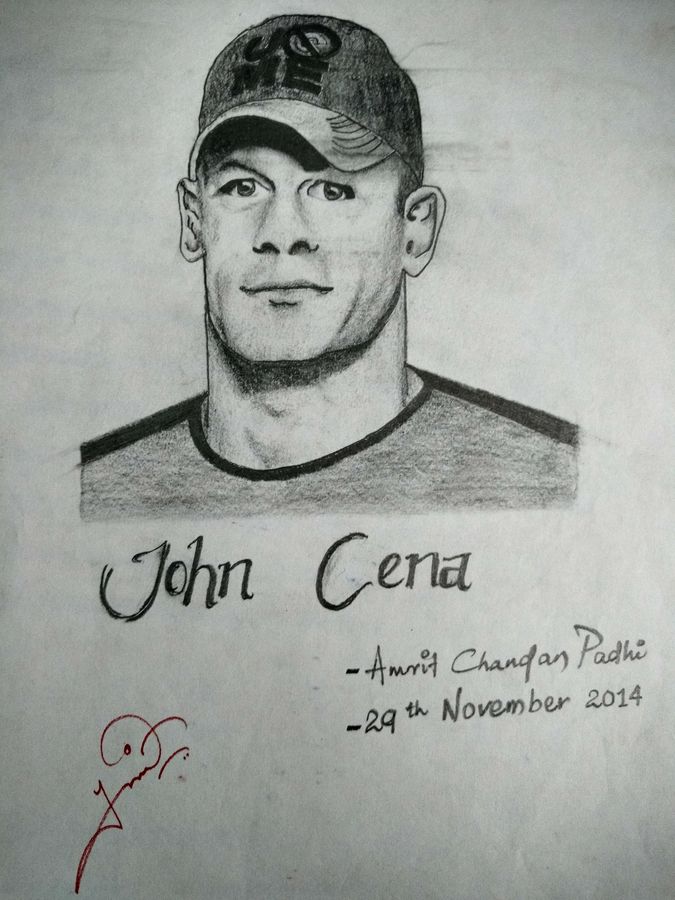 ME
John Cena
- Amrit Chandan Padhi
- 29th November 2014